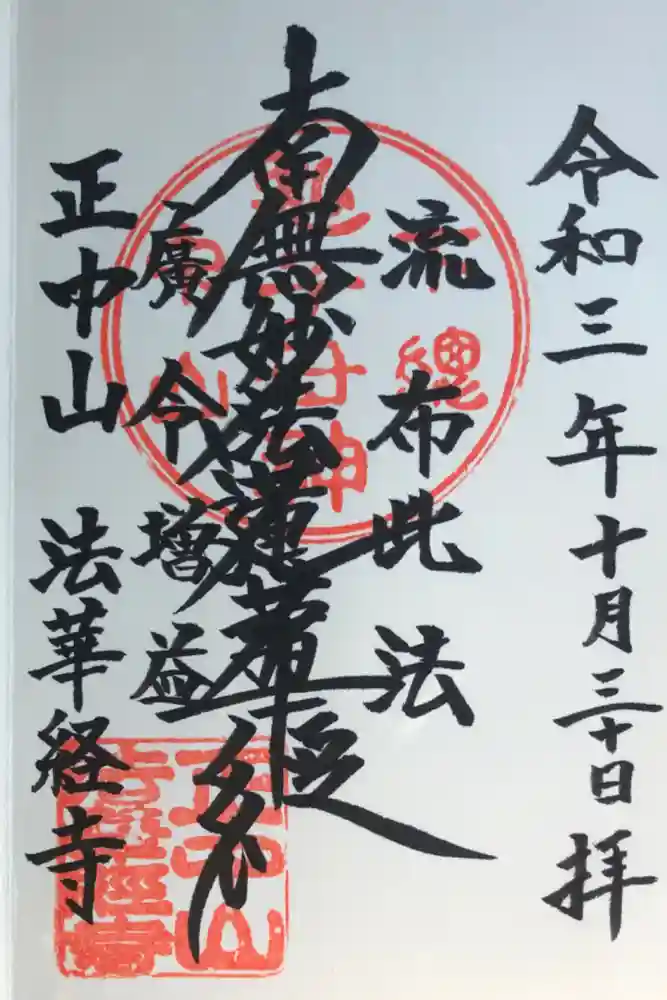 令和三年十月三十日 拝
流布此法
南無妙法蓮華経
廣令増益
正中山 法華経寺
正中山
法華経寺